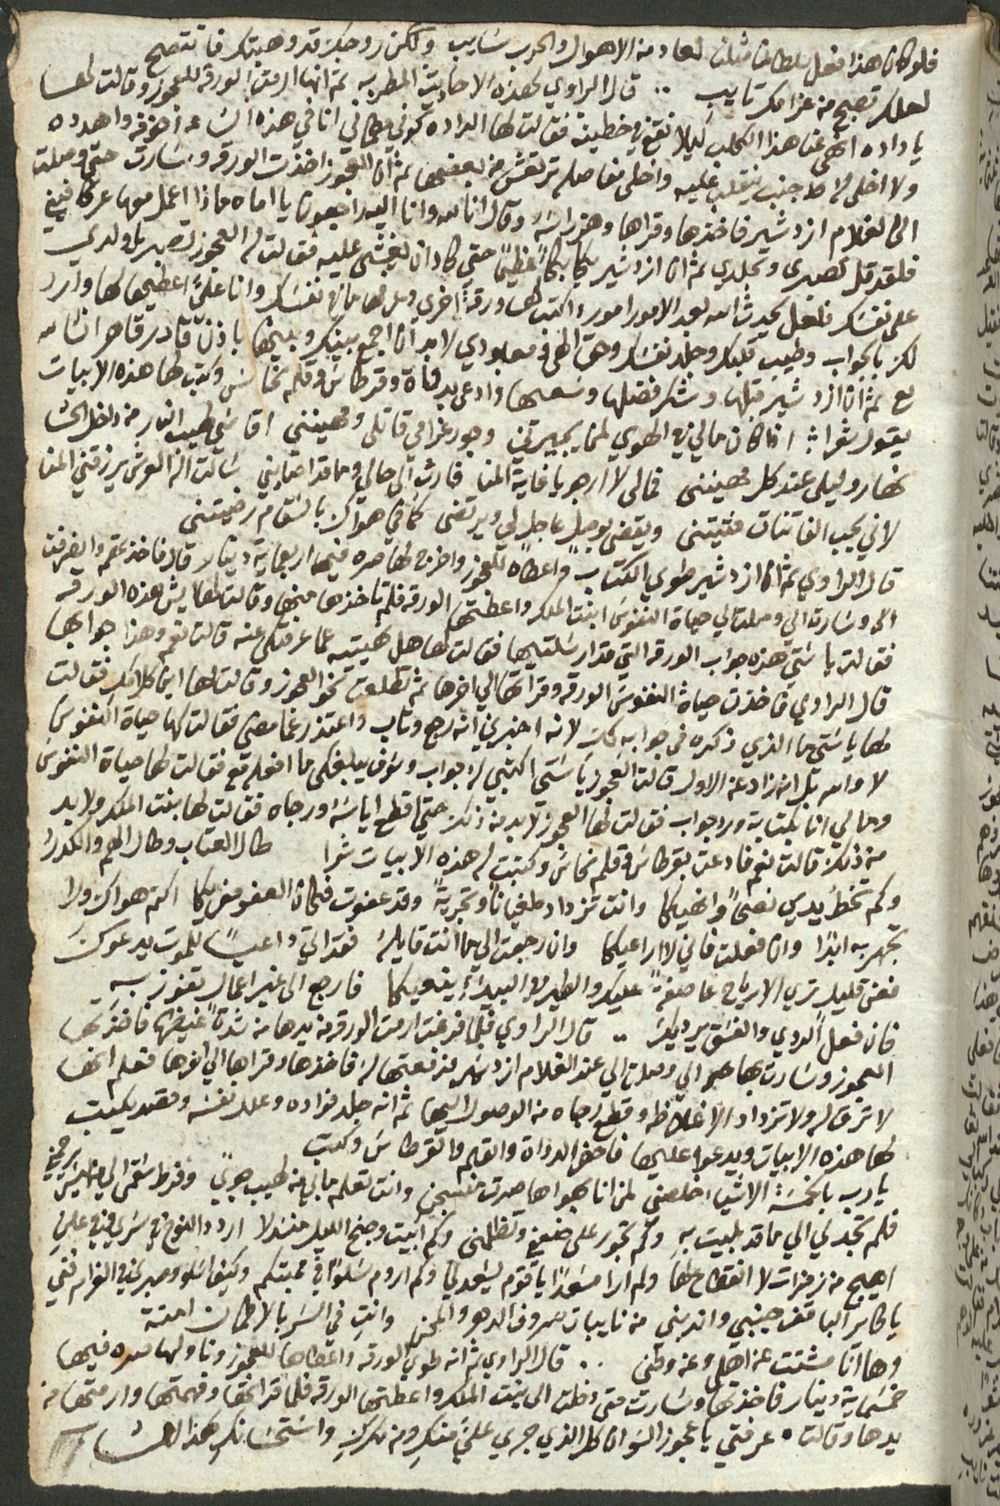 فلو كان هذا فعل سلطاننا مثلك لعاد من الاهوال والحرب شايب ولكن روحك قد وهبتك فانتصح
لعلك تصبح من غرامك تايب .. قال الراوي لهذه الاحاديث المطربه ثم انها ارمت الورقه للعجوز وقالت لها
يا داده انهي عنا هذا الكلب ليلا نقع في خطيته فقالت لها الداده
ولا اخلي له جنب ينقلب عليه ثم ان العجوز اخذت الورقه وسارت حتي وصلت
الي الغلام ازدشير فاخذها وقراها وهز راسه وقال انا لله وانا اليه راجعون يا اماه ماذا اعمل
فلقد قل تصبري وتجلدي ثم ان ازدشير بكا بكاً عظيماً حتي كاد ان يغشي عليه فقالت له العجوز تصبر يا ولدي
علي نفسك فلعل يحدث الله بعد الامور امور واكتب لها ورقة اخري وانا علي اعطيها لها وارد
لك بالجواب وطيب قلبك وجلد نفسك وحق الهي ومعبودي لابد ان اجمع بينك وبينها باذن قادر قاهر انشا الله
تع ثم ان ازدشير قبلها وشكر فضلها وسعيها وادعي بدواة وقرطاس وقلم نحاس وكتب لها هذه الابيات
يقول شعرا اذا كان مالي في الهوي لمن يجيرني وجور غرامي قاتلي ومهينني اقاسي لهيب النار من داخل الحشا
نهار وليلي عند كل فمالي لا ارجو يا غاية المنا فارث الي حالي وما قد اصابني سالت اله العرش يرزقني المنا
لاني بحب الغانيات فتيتني ويقضي بوصل عاجل لي ويرتضي كما في هواك بالسقام رضيتني
قال الراوي ثم ان ازدشير طوي الكتاب واعطاه للعجوز واخرج لها صره فيها اربعماية دينار قال فاخذتهم وانصرفت
الي وسارة الي وصلت الي حياة النفوس ابنت الملك واعطتها الورقه فلم تاخذها منها وقالت لها ايش هذه الورقه
فقالت يا ستي هذه جواب الورقه التي قد ارسلتيها فقالت لها هل نهيتيه عما عرفتكي عنه قالت نعم وهذا جوابها
قال الراوي فاخذت حياة النفوس الورقه وقراتها الي اخرها ثم تطلعت نحو العجوز وقالت لها اين كلامك فقالت
لها يا ستي ما الذي ذكره في جوابه لك لانه اخبرني انه رجع وتاب واعتذر عما مضي فقالت لها حياة النفوس
لا والله بل انه زاد عن الاول قالت العجوز يا ستي اكتبي له جواب وسوف يبلغكي ما افعل معه فقالت لها حياة النفوس
ومالي انا بكتابة ورد جواب فقالت لها العجوز لابد من ذلك حتي اقطع اياسه ورجاه فقالت لها بنت الملك ولابد
من ذلك قالت نعم فادعت بقرطاس وقلم نحاس وكتبت له هذه الابيات شعرا طال العتاب وطال الهم والكدر
وكم تخط يدي نصحاً وانهيكا وانت تزداد طغياناً وتجربةً وقد عفوت فكان العفو مغريكا اكتم هواك ولا
تجهر به ابداً وان فعلت فاني لا اراعيكا وان رجعت الي ما انت قايله فقد اتي داعياً للموت يدعوك
فعن قليل تري الارياح عاصفةً عليك والطير في البيداء ينعيكا فارجع الي خير اعمال تفوز به
فان فعل الردي والفسق يرديك .. قال الراوي فلما فرغت ارمت الورقه من يدها من شدة غيضها فاخذتها
العجوز وسارت بها الي وصلت الي عند الغلام ازدشير فدفعتها له فاخذها وقراها الي اخرها فعلم انها
لا ترق له ولا تزداد الا غلاظه وقطع رجاه من الوصول اليها ثم انه جلد فواده وعلل نفسه وقصد يكتب
لها هذه الابيات ويدعوا عليها فاحضر الدواة والقلم والقرطاس وكتب
يا رب بالخمسة الاشياخ خلصني لمن انا بهواها صرت وانت تعلم مابي من لهيب جوي وفرط سقمي الي من ليس يرحمني
فلم تجد لي الي ما قد بليت به وكم تجور علي ضعفي وتظلمني وكم ابيت وجنح الليل منسدلا اردد النوح في سري وفي علني
اهيج من زفرات لا انقطاع لها ولم ارا مسعداً يا قوم يسعدني وكم اروم سلوا في محبتكم وكيف اسلو وصبري في الغرام فني
يا طاير البان قف حينبي واندبني من نايبات صروف الدهر والمحن وانت في السر بالاوطان امنة
وها انا مشتت عن اهلي وعن وطني .. قال الراوي ثم انه طوي الورقه واعطاها للعجوز وناولها صره فيها
خمسماية دينار فاخذتها وسارت حتي دخلت الي بنت الملك واعطتها الورقه فلما قراتها وفهمتها وارمتها من
يدها وقالت عرفتي يا عجوز السو ان كل الذي جري علي منكي ومن مكركي واستحسانكي لهذا الشاب